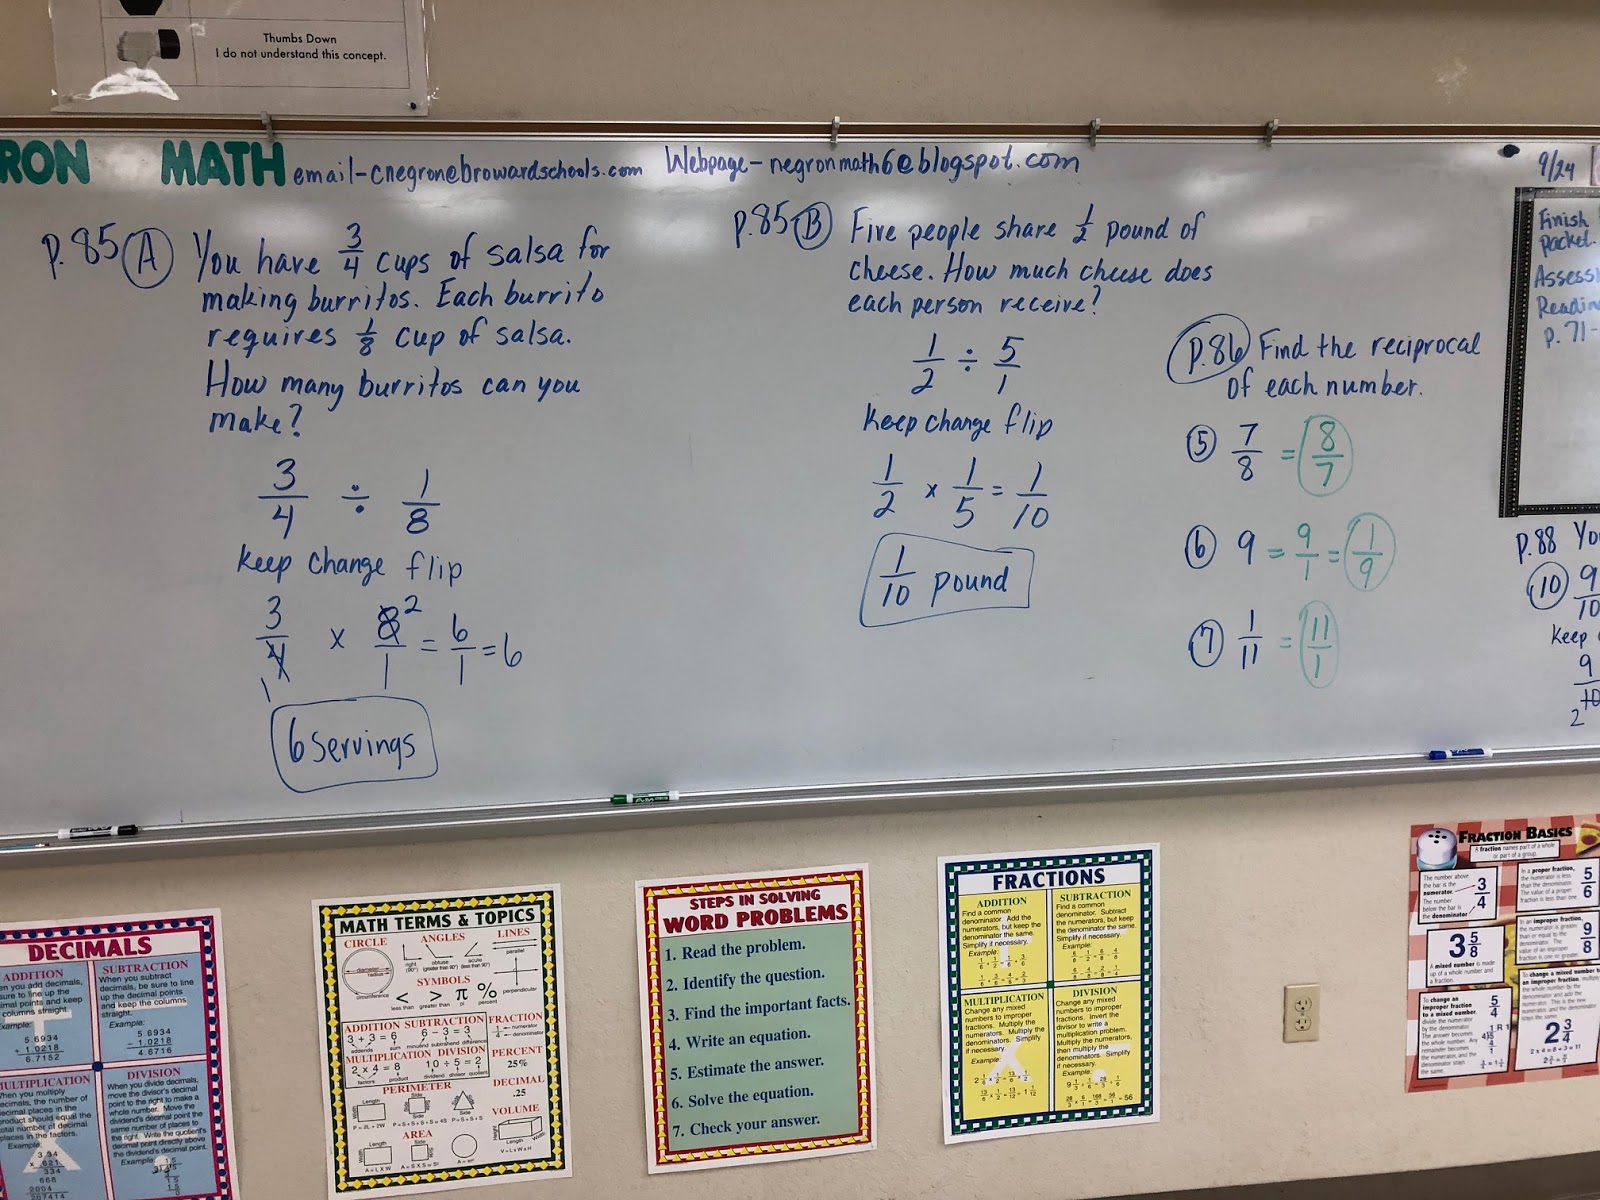 Thumbs Down
I do not understand this concept.
RON MATH email-cnegron@browardschools.com Webpage-negronmath6@blogspot.com
9/24
p.85 A You have 3/4 cups of salsa for
making burritos. Each burrito
requires 1/8 cup of salsa.
How many burritos can you
make?
3/4 ÷ 1/8
Keep change flip
3/4 x 8/1 2 1 = 6/1 = 6
6 servings
p.85 B Five people share 1/2 pound of
cheese. How much cheese does
each person receive?
1/2 ÷ 5/1
Keep change flip
1/2 x 1/5 = 1/10
1/10 pound
p.86 Find the reciprocal
of each number.
5 7/8 = 8/7
6 9 = 9/1 = 1/9
7 1/11 = 11/1
Finish
packet.
Readin
p.71-
p.88 You
10 9/10
Keep
9/10
2
DECIMALS
ADDITION
5.6934
+ 1.0218
6.7152
SUBTRACTION
When you subtract
decimals, be sure to line
up the decimal points
and keep the columns
straight.
Example:
5.6934
- 1.0218
4.6716
MULTIPLICATION
DIVISION
When you divide decimals,
move the divisor's decimal
point to the right to make a
whole number. Move the
dividend's decimal point the
same number of places to
the right. Write the quotient's
decimal point directly above
the dividend's decimal point.
Example:
MATH TERMS & TOPICS
CIRCLE
diameter
radius
circumference
ANGLES
right
(90°)
obtuse
(greater than 90°)
acute
(less than 90°)
LINES
parallel
perpendicular
SYMBOLS
< > π %
less than greater than pi percent
ADDITION
3 + 3 = 6
addends sum
SUBTRACTION
6 - 3 = 3
minuend subtrahend difference
FRACTION
numerator
denominator
MULTIPLICATION
2 x 4 = 8
factors product
DIVISION
10 ÷ 5 = 2
dividend divisor quotient
PERCENT
25%
DECIMAL
.25
PERIMETER
Length
Width
Side
P = 2L + 2W
P = S + S + S
VOLUME
Length
Width
Height
V = L x W x H
AREA
Length
Width
Side
A = L X W
STEPS IN SOLVING
WORD PROBLEMS
1. Read the problem.
2. Identify the question.
3. Find the important facts.
4. Write an equation.
5. Estimate the answer.
6. Solve the equation.
7. Check your answer.
FRACTIONS
ADDITION
Find a common
denominator. Add the
numerators, but keep
the denominator the same.
Simplify if necessary.
Example:
SUBTRACTION
Find a common
denominator. Subtract
the numerators, but keep
the denominator the same.
Simplify if necessary.
Example:
MULTIPLICATION
Change any mixed
numbers to improper
fractions. Multiply the
numerators. Multiply the
denominators. Simplify
if necessary.
Example:
DIVISION
Change any mixed
numbers to improper
fractions. Invert the
divisor to write a
multiplication problem.
Multiply the numerators,
then multiply the
denominators. Simplify
if necessary.
Example:
FRACTION BASICS
A fraction names part of a whole
or part of a group.
The number above
the bar is the
numerator.
The number
below the bar is
the denominator
3/4
In a proper fraction,
the numerator is less
than the denominator.
The value of a proper
fraction is less than one.
5/6
3 5/8
A mixed number is made
up of a whole number and
a fraction.
In an improper fraction,
9/8
To change an
improper fraction
to a mixed number,
divide the numerator
by the denominator.
5/4
To change a mixed number to
an improper fraction,
2 3/4